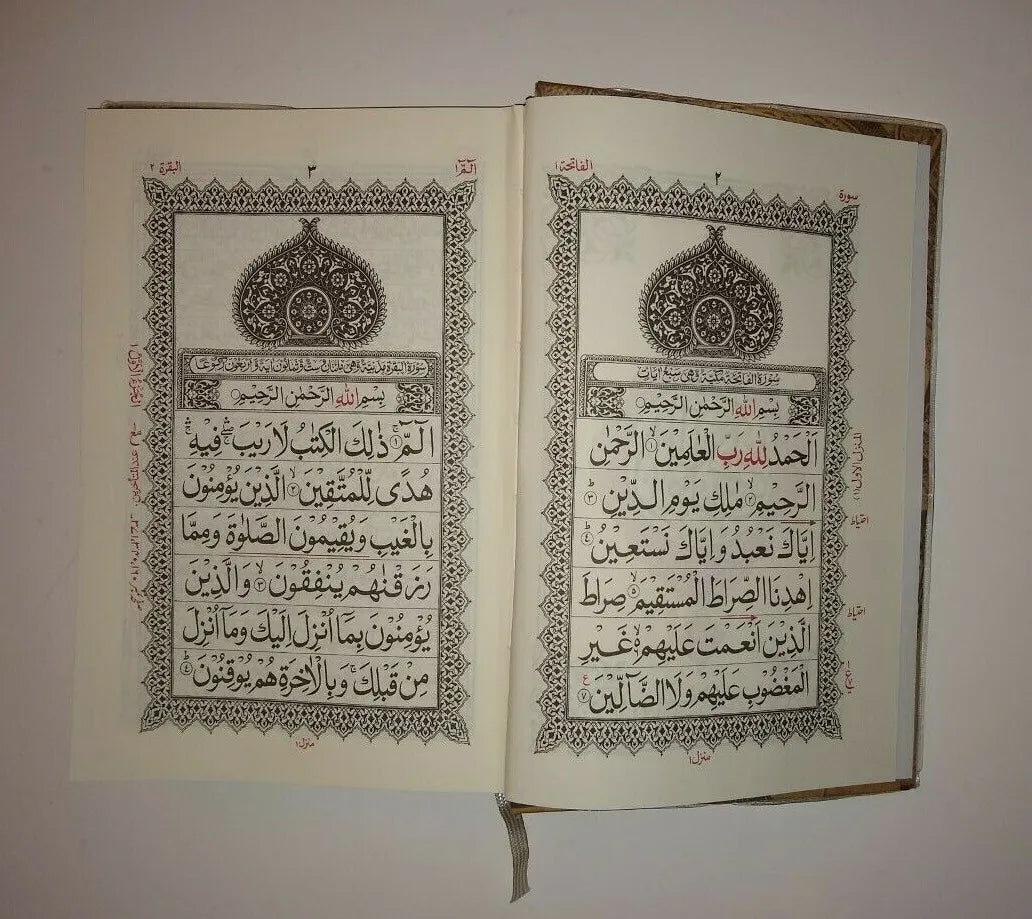 سورة
٢
الفاتحة ١
سورة الفاتحة مكية وهي سبع ايات
بِسْمِ اللهِ الرَّحْمٰنِ الرَّحِيْمِ
اَلْحَمْدُ لِلّٰهِ رَبِّ الْعٰلَمِيْنَ ۙ﴿١﴾ الرَّحْمٰنِ
الرَّحِيْمِ ۙ﴿٢﴾ مٰلِكِ يَوْمِ الدِّيْنِ ؕ﴿٣﴾
اِيَّاكَ نَعْبُدُ وَ اِيَّاكَ نَسْتَعِيْنُ ؕ﴿٤﴾
اِهْدِنَا الصِّرَاطَ الْمُسْتَقِيْمَ ۙ﴿٥﴾ صِرَاطَ
الَّذِيْنَ اَنْعَمْتَ عَلَيْهِمْ ۙ۬ۦ غَيْرِ
الْمَغْضُوْبِ عَلَيْهِمْ وَلَا الضَّآلِّيْنَ ﴿٧﴾ ع
المنزل الاول (١)
احتياط
احتياط
منزل ١
الٓمّٓ ١
٣
البقرة ٢
سورة البقرة مدنية وهي مائتان وست وثمانون اية و اربعون ركوعا
بِسْمِ اللهِ الرَّحْمٰنِ الرَّحِيْمِ
الٓمّٓ ۚ﴿١﴾ ذٰلِكَ الْكِتٰبُ لَا رَيْبَ ۛۖۚ فِيْهِ ۛۚ
هُدًى لِّلْمُتَّقِيْنَ ۙ﴿٢﴾ الَّذِيْنَ يُؤْمِنُوْنَ
بِالْغَيْبِ وَ يُقِيْمُوْنَ الصَّلٰوةَ وَمِمَّا
رَزَقْنٰهُمْ يُنْفِقُوْنَ ۙ﴿٣﴾ وَالَّذِيْنَ
يُؤْمِنُوْنَ بِمَآ اُنْزِلَ اِلَيْكَ وَمَآ اُنْزِلَ
مِنْ قَبْلِكَ ۚ وَبِالْاٰخِرَةِ هُمْ يُوْقِنُوْنَ ؕ﴿٤﴾
منزل ١